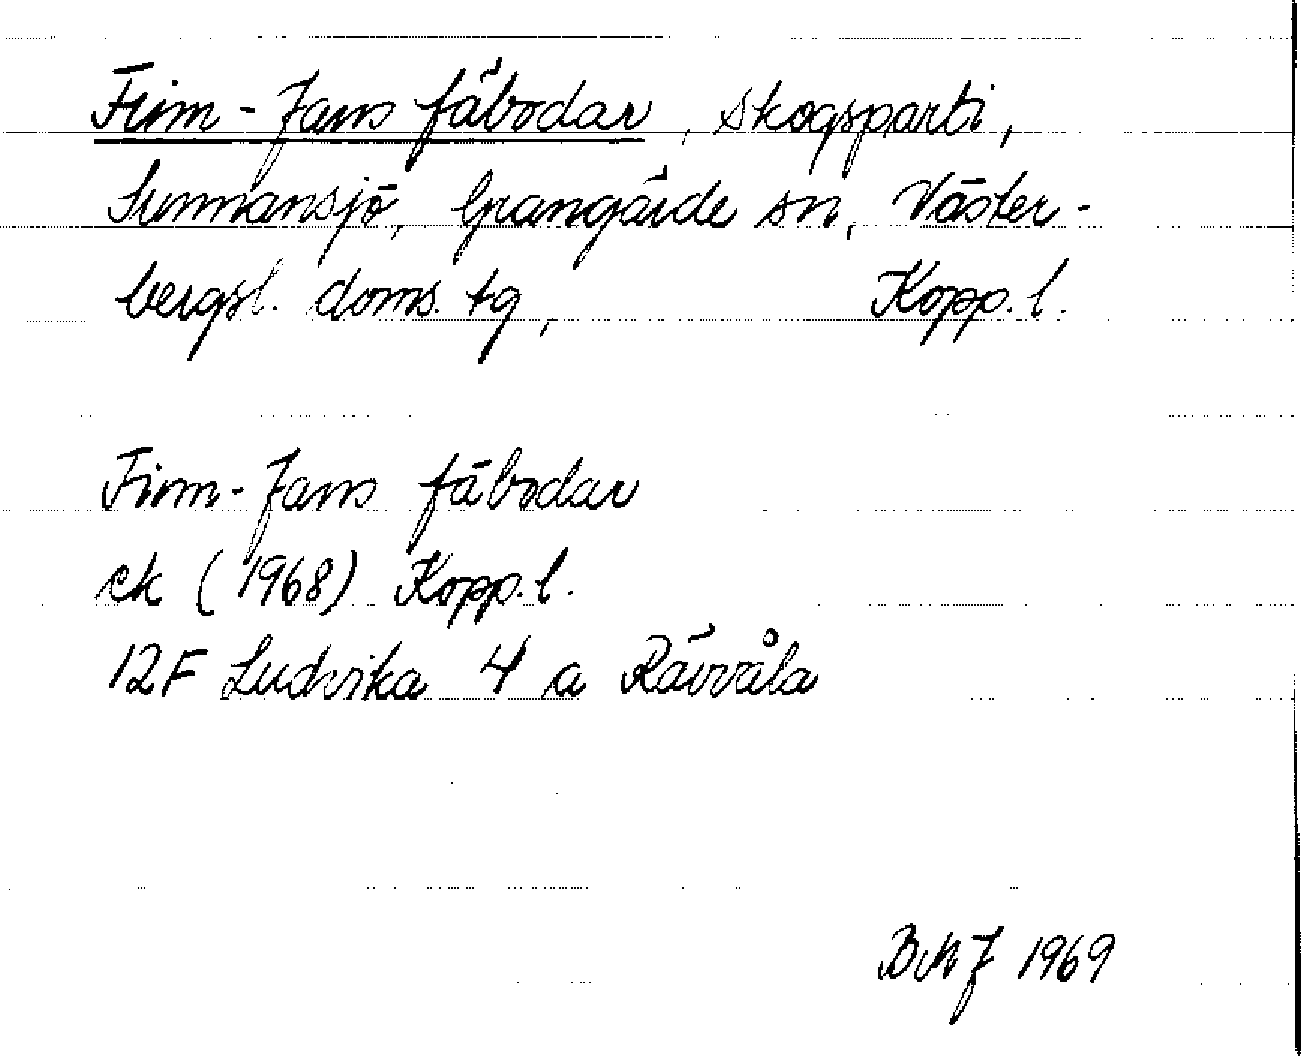 Finn-Jans fäbodar, skogsparti,
Sunnansjö, Grangärde sn, Väster-
bergsl. doms. tg, Kopp. l.
Finn-Jans fäbodar
ek (1968) Kopp. l.
12F Ludvika 4 a Rävvåla
BMJ 1969